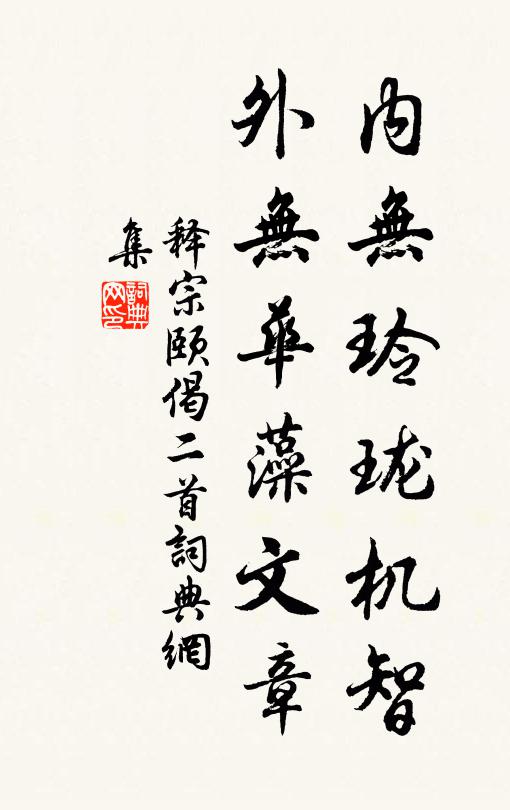 内無玲珑机智
外無華藻文章
释宗颐偈二首詞典網
集
詞典
网印